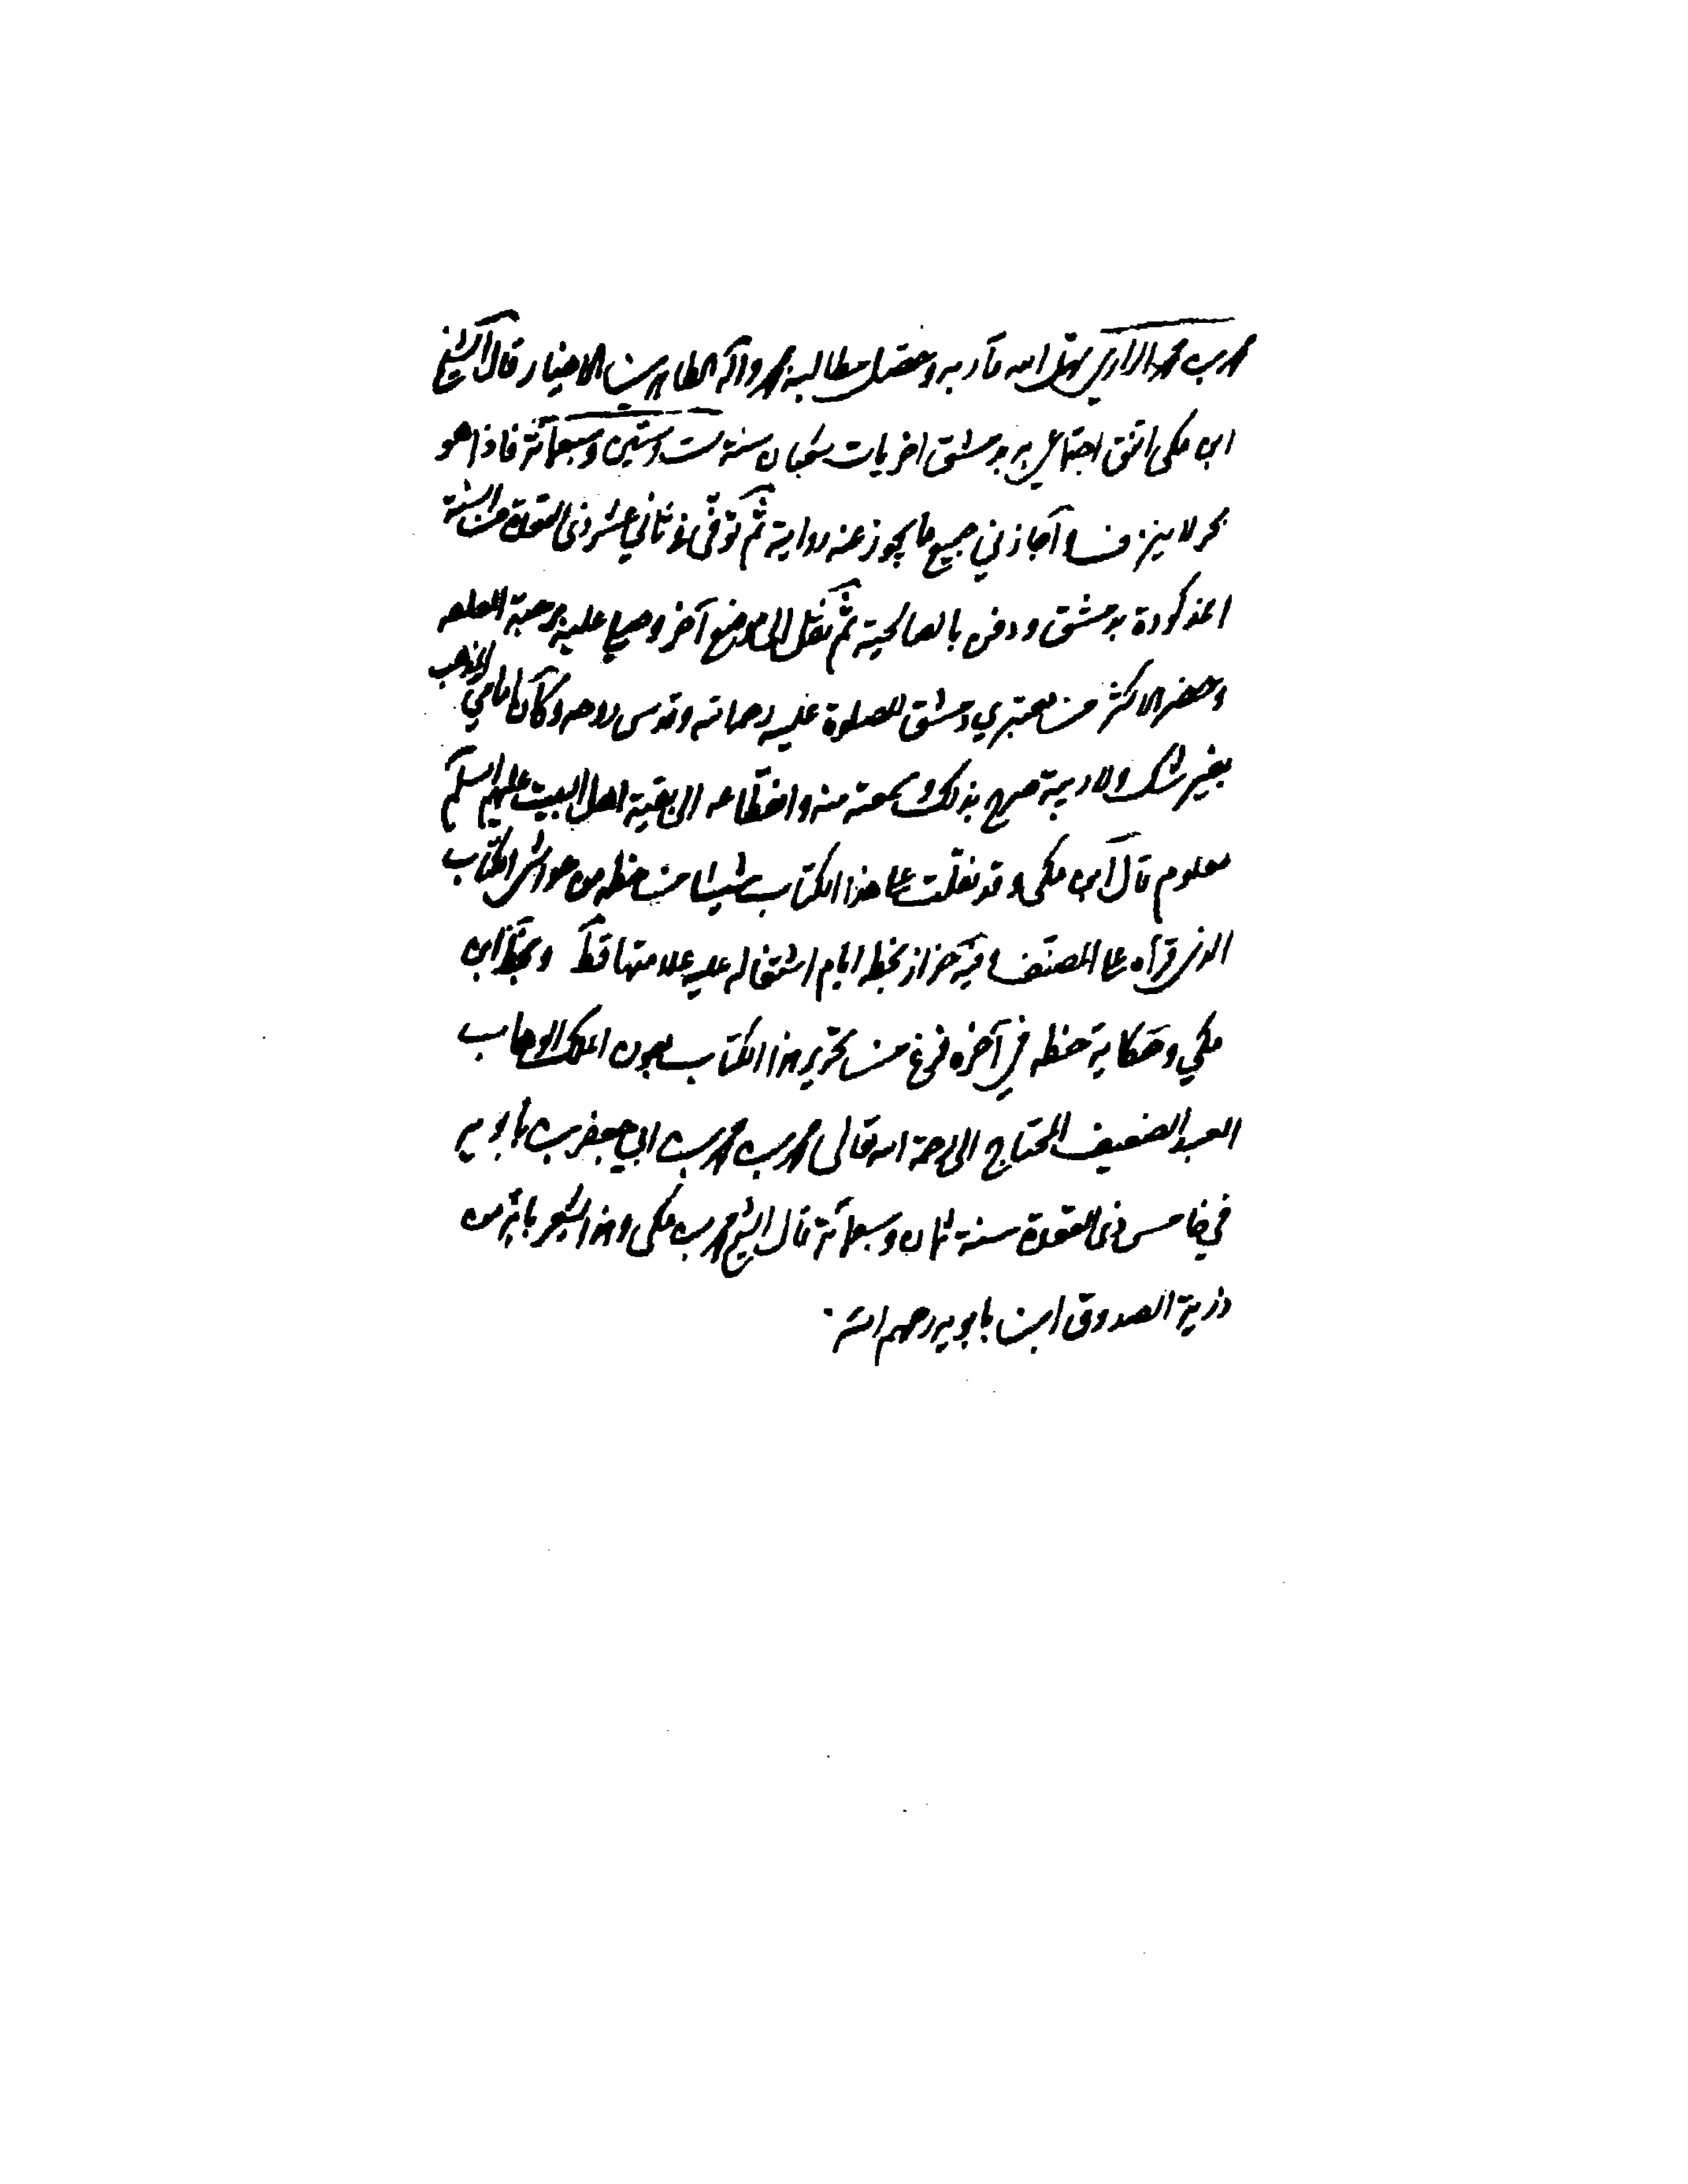 محمد بن محمد الرازي سهل الله مآربه وحصل مطالبه بمحمد وآله الطاهرين الاخيار قال الشيخ
ابن مكي اتفق اجتماعي به بدمشق اخريات شعبان سنة ست وستين وسبعمائة فاذا هو
بحر لا ينزف اجازني جميع ما يجوز عنه رواية ثم توفي في ثاني عشر ذي القعدة من السنة
المذكورة بدمشق ودفن بالصالحية ثم نقل الى موضع آخر وصلي عليه برحبة القلعة
وحضر الاكثر من معتبري دمشق للصلوة عليه رحمه الله وقدس روحه وكان امامي المذهب
بغير شك ولا ريبة صرح بذلك وسمعته منه وانقطاعه الى بقية اهل البيت عليهم السلم
معلوم قال ابن مكي وقد نقلت على هذا الكتاب شيئا من خطه من حواشي الكتاب
الذي قرأه على المصنف وفيه حزاز بخطه ايام اشتغاله عليه علامتها قط وبخط ابن
مكي وحكاية خطه في آخره فرغ من تحرير هذا الكتاب بعون الملك الوهاب
العبد الضعيف المحتاج الى رحمة الله تعالى محمد بن محمد بن ابي جعفر بن بابويه
في خامس ذي القعدة سنة ثمان وسبعمائة قال الشيخ محمد بن مكي وهذا يشعر بانه من
ذرية الصدوق ابن بابويه رحمهم الله